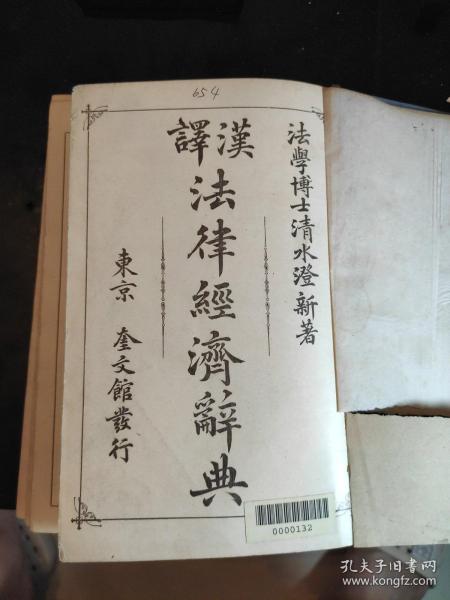 654
法學博士清水澄新著
漢譯
法律經濟辭典
東京 奎文館發行
0000132
孔夫子旧书网
www.kongfz.com